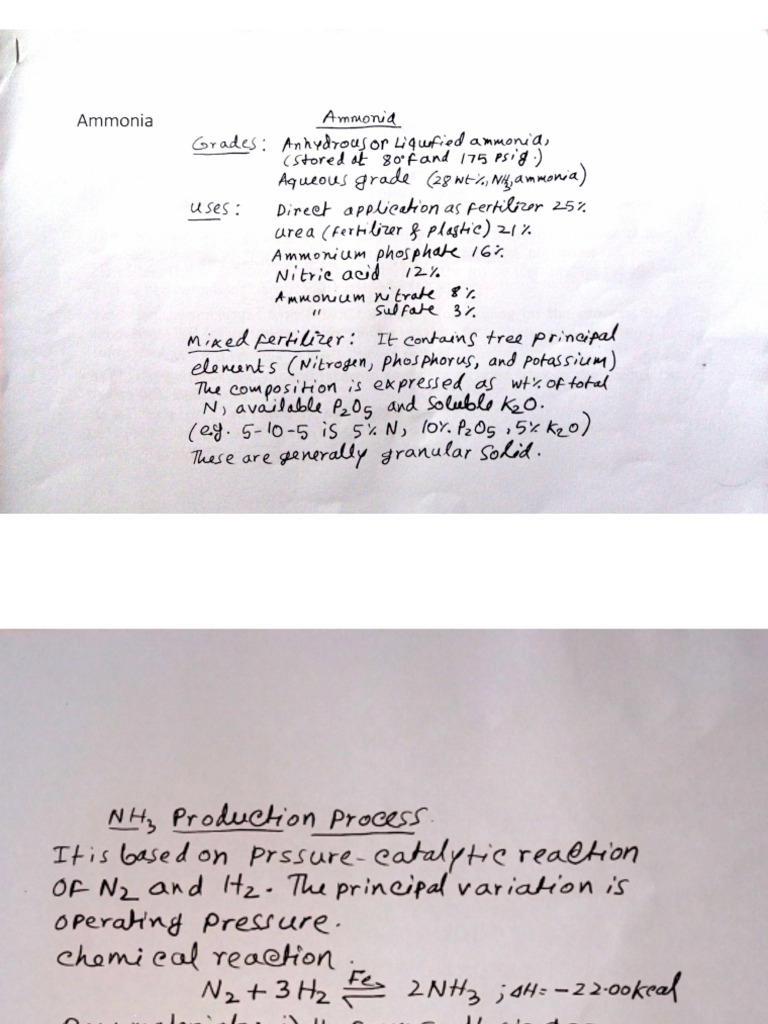 Ammonia
Ammonia
Grades: Anhydrous or Liqufied ammonia,
(stored at 80°F and 175 psig.)
Aqueous grade (28 wt%, NH3, ammonia)
Uses: Direct application as fertilizer 25%
urea (fertilizer & plastic) 21%
Ammonium phosphate 16%
Nitric acid 12%
Ammonium nitrate 8%
" sulfate 3%
Mixed fertilizer: It contains tree principal
elements (Nitrogen, phosphorus, and potassium)
The composition is expressed as wt% of total
N, available P2O5 and soluble K2O.
(eg. 5-10-5 is 5% N, 10% P2O5, 5% K2O)
These are generally granular solid.
NH3 Production Process.
It is based on prssure-catalytic reaction
of N2 and H2. The principal variation is
operating pressure.
chemical reaction.
N2 + 3H2 Fe ⇌ 2NH3 ; ΔH = -22.00 kcal